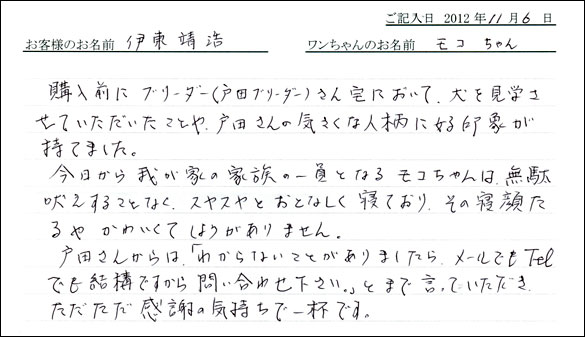 ご記入日 2012年11月6日
お客様のお名前 伊東靖浩 ワンちゃんのお名前 モコちゃん
購入前にブリーダー(戸田ブリーダー)さん宅において、犬を見学さ
せていただいたことや、戸田さんの気さくな人柄に好印象が
持てました。
今日から我が家の家族の一員となるモコちゃんは、無駄
吠えすることなく、スヤスヤとおとなしく寝ており、その寝顔た
るやかわいくてしょうがありません。
戸田さんからは、「わからないことがありましたら、メールでもTel
でも結構ですから問い合わせ下さい。」とまで言っていただき、
ただただ感謝の気持ちで一杯です。